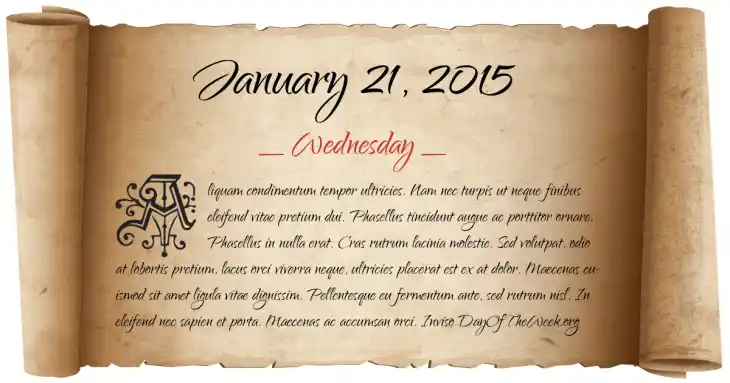 January 21, 2015
Wednesday
Aliquam condimentum tempor ultricies. Nam nec turpis ut neque finibus
eleifend vitae pretium dui. Phasellus tincidunt augue ac porttitor ornare.
Phasellus in nulla erat. Cras rutrum lacinia molestie. Sed volutpat, odio
at lobortis pretium, lacus orci viverra neque, ultricies placerat est ex at dolor. Maecenas eu-
ismod sit amet ligula vitae dignissim. Pellentesque eu fermentum ante, sed rutrum nisl. In
eleifend nec sapien et porta. Maecenas ac accumsan orci. Inviso DayOfTheWeek.org